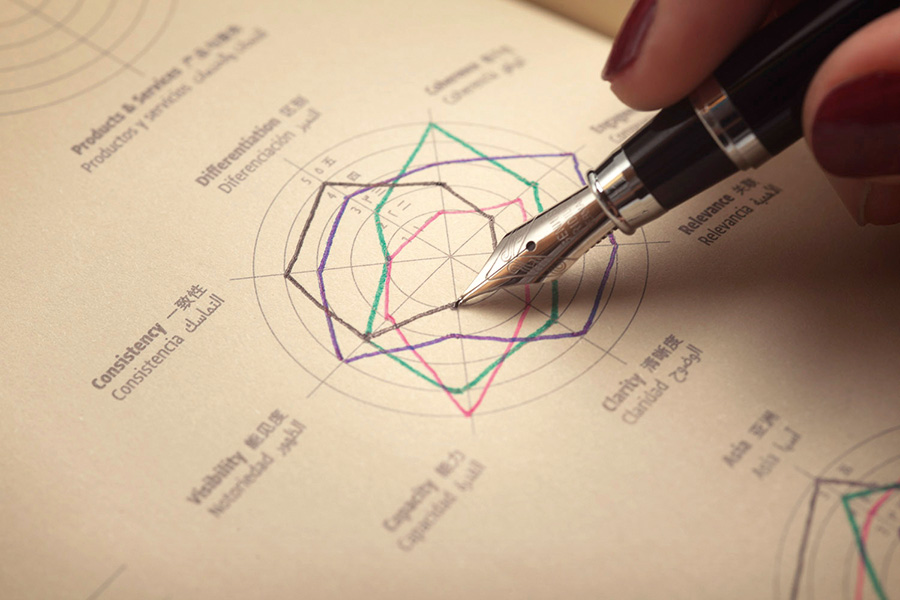 Products & Services 产品与服务
Productos y servicios
Coherence
Coherencia
Differentiation 区别
Diferenciación
Relevance 关联
Relevancia الأهمية
Consistency 一致性
Consistencia التماسك
Clarity 清晰度
Claridad الوضوح
Visibility 能见度
Notoriedad الظهور
Capacity 能力
Capacidad
Asia 亚洲
Asia آسيا
5 五
4 四
3 三
2 二
1 一